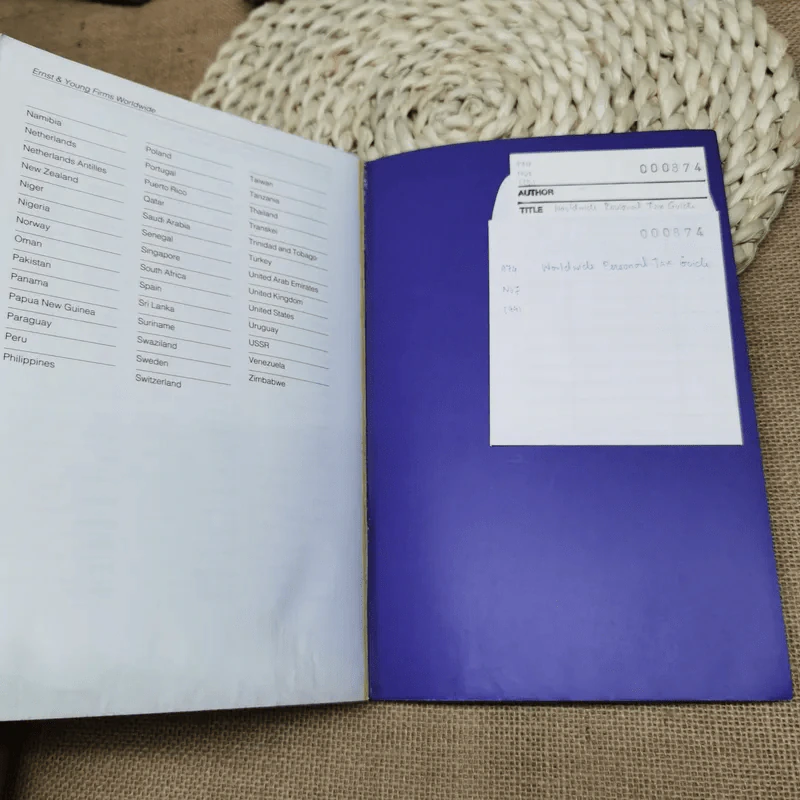 Ernst & Young Firms Worldwide
Namibia
Netherlands
Netherlands Antilles
New Zealand
Niger
Nigeria
Norway
Oman
Pakistan
Panama
Papua New Guinea
Paraguay
Peru
Philippines
Poland
Portugal
Puerto Rico
Qatar
Saudi Arabia
Senegal
Singapore
South Africa
Spain
Sri Lanka
Suriname
Swaziland
Sweden
Switzerland
Taiwan
Tanzania
Thailand
Transkei
Trinidad and Tobago
Turkey
United Arab Emirates
United Kingdom
United States
Uruguay
USSR
Venezuela
Zimbabwe
000874
AUTHOR
TITLE Worldwide Personal Tax Guide
000874
Worldwide Personal Tax Guide